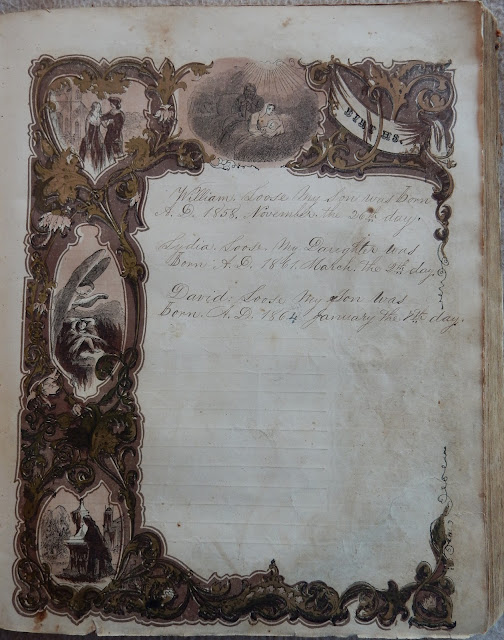 BIRTHS.
William. Loose My Son was born
A. D. 1858. November. the 26th day.
Lydia. Loose. My Daughter was
Born. A. D. 1861. March. the 9th day.
David. Loose My Son was
Born. A. D. 1864 January the 8th day.